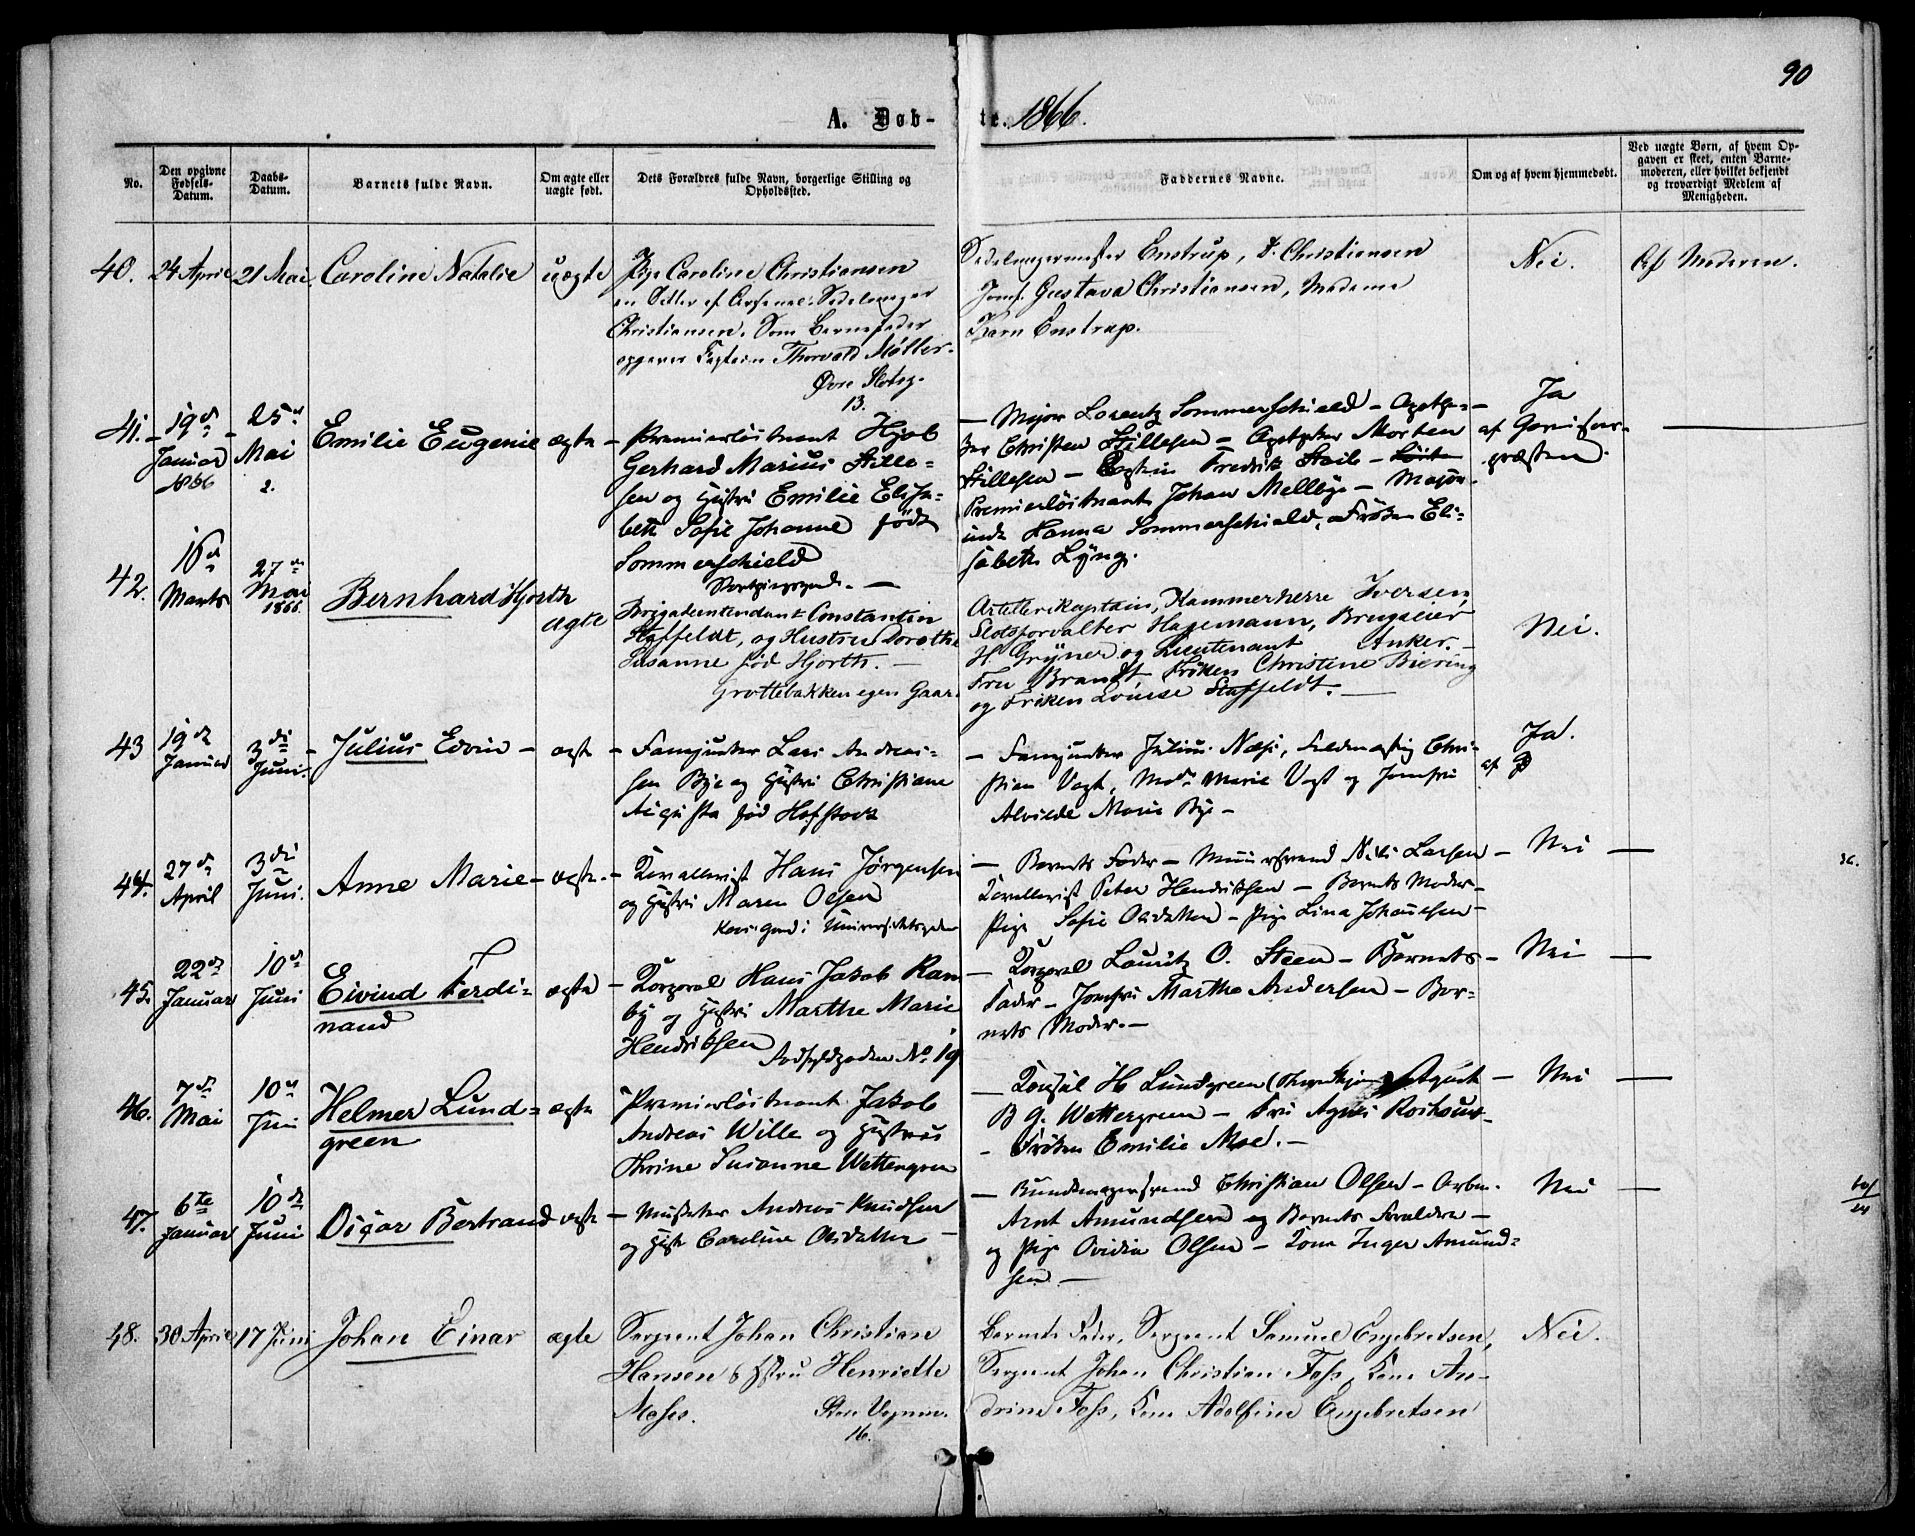 90
A. Døb-te. 1866.
No.
Den opgivne Fødsels-Datum.
Daabs-Datum.
Barnets fulde Navn.
Om ægte eller uægte født.
Dets Forældres fulde Navn, borgerlige Stilling og Opholdssted.
Faddernes Navne.
Om og af hvem hjemmedøbt.
Ved uægte Børn, af hvem Op-
gaven er skeet, enten Barne-
moderen, eller hvilket bekjendt
og troværdigt Medlem af
Menigheden.
40. 24 April 21 Mai Caroline Natalie uægte
Pige Caroline Christiansen
en Datter af Arsenal: Sadelmager
Christiansen. Som Barnefader
opgives Captein Thorvald Møller.
Øvre Slotsg.
13.
Sadelmagermester Enstrup, Christiansen
Jomf. Gustava Christiansen, Madame
Karn Enstrup.
Nei.
Af Moderen.
41. 19de Januar 1866
25de Mai
2.
Emilie Eugenie ægte
Premierløitnant Hjob
Gerhard Marius Stille-
sen og Hustru Emilie Elisa-
beth Sofie Johanne født
Sommerschield
— Major Lorentz Sommerschield — Apothe-
ker Christen Stillesen — Apotheker Morten
Stillesen — Captein Fredrik Stail —
Premierløitnant Johan Mellbye — Major-
inde Hanna Sommerschield, Frøken Eli-
sabeth Lyng.
Ja
af Garnisons-
præsten.
42. 16de Marts
27de Mai 1866.
Bernhard Hjorth
ægte
Brigadeintendant Constantin
Staffeldt, og Hustru Dorothe
Susanne fød Hjorth. —
Grottebakken egen Gaard.
Artillerikaptain, Kammerherre Iversen,
Slotsforvalter Hagemann, Brugseier
H. Grüner og Lieutenant Anker. —
Fru Brandt, Frøken Christine Biering
og Frøken Louise Staffeldt. —
Nei.
43 19de Januar 3die Juni. Julius Edvin — ægte
— Fanejunker Lars Andrea-
sen Bye og Hustru Christiane
Augusta fød Hofstock
— Fanejunker Julius Næss, Chri-
stian Vogt, Mad. Marie Vogt og Jomfru
Alvilde Marie Bye —
Ja.
af P
44. 27de April 3die Juni. Anne Marie — ægte
— Kavallerist Hans Jørgensen
og Hustru Maren Olsen
i Universitetsgaden
— Barnets Fader — Muursvend Nils Larsen
Kavallerist Peter Hendriksen — Barnets Moder —
Pige Sofie Olsdatter — Pige Lina Johannesen —
Nei —
45. 22de Januar 10de Juni
Eivind Ferdi-
nand
ægte
— Korporal Hans Jakob Ram
by og Hustru Marthe Marie
Hendriksen
No. 19
— Korporal Lauritz O. Steen — Barnets
Fader — Jomfru Marthe Andersen — Bar-
nets Moder. —
Nei —
46. 7de Mai 10de Juni
Helmer Lund-
green
ægte
Premierløitnant Jakob
Andreas Wille og Hustru
Thrine Susanne Wettergreen
— Konsul H. Lundgreen (Throndhjem) Agent
B G. Wettergreen — Fru Agnes
— Frøken Emilie Moe. —
Nei —
47. 6te Januar 10de Juni Osgar Bertrand ægte
— Musketer Andreas Knudsen
og Hustr Caroline Olsdatter —
— Bundtmagersvend Christian Olsen — Arbm.
Arnt Amundsen og Barnets Forældre —
og Pige Ovidia Olsen — Kone Inger Amund-
sen —
Nei —
48. 30 April 17 Juni Johan Einar ægte
Sergeant Johan Christian
Hansen & Hstru Henriette
Moses.
Store Vognm.
16.
Barnets Fader, Sergeant Samuel Engebretsen,
Sergeant Johan Christian Foss, Kone An-
drine Foss, Kone Adolfine Engebretsen
Nei.